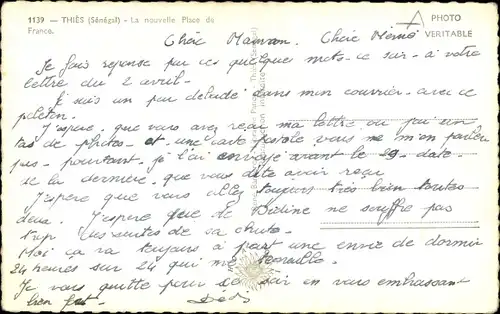 1139 — THIÈS (Sénégal) - La nouvelle Place de
France.
PHOTO
VERITABLE
Chère Maman. Chère Mémé
Je fais reponse par ces quelque mots ce sur à votre
lettre du 2 avril.
E suis un peu dans mon courrier avec ce
peleton.
J'espère que vous avez reçu ma lettre ou j'ai un
tas de photos et une carte postale vous ne m'en parlez
pas pourtant je l'ai envoyé avant le 29 date
de la dernière que vous dite avoir reçu
J'espère que vous allez toujours très bien toutes
deux. J'espère que te Bédine ne souffre pas
trop les suites de sa chute.
Moi ça va toujours à part une envie de dormir
24 heures sur 24 qui me travaille.
Je vous quitte pour ce soir en vous embrassant
bien fort Dédé